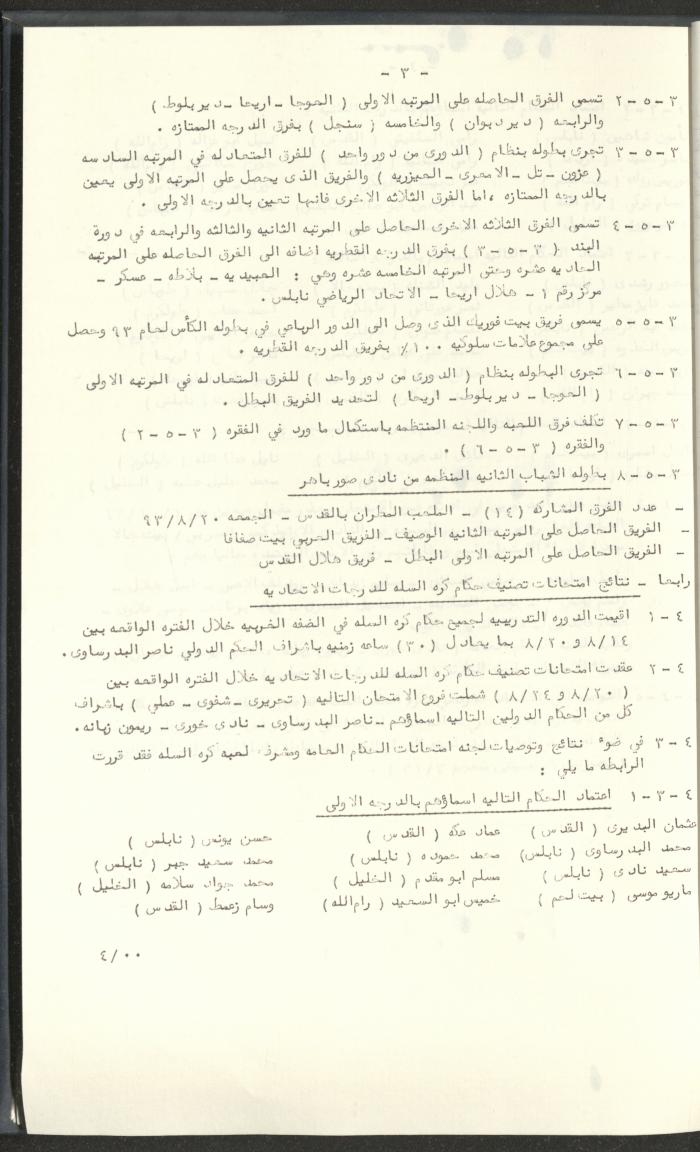 - ٣ -
٣ - ٥ - ٢ تسمى الفرق الحاصله على المرتبه الاولى ( العوجا - اريحا - دير بلوط )
والرابعه ( دير دبوان ) والخامسه ( سنجل ) بفرق الدرجه الممتازه .
٣ - ٥ - ٣ تجرى بطوله بنظام ( الدورى من دور واحد ) للفرق المتعادله في المرتبه السادسه
( عزون - تل - الامعرى - العيزريه ) والفريق الذى يحصل على المرتبه الاولى يعين
بالدرجه الممتازه ، اما الفرق الثلاثه الاخرى فانها تعين بالدرجه الاولى .
٣ - ٥ - ٤ تسمى الفرق الثلاثه الاخرى الحاصل على المرتبه الثانيه والثالثه والرابعه في دورة
البند ( ٣ - ٥ - ٣ ) بفرق الدرجه القطريه اضافه الى الفرق الحاصله على المرتبه
الحاديه عشره وحتى المرتبه الخامسه عشره وهي : العبيديه - بلاطه - عسكر -
مركز رقم ١ - هلال اريحا - الاتحاد الرياضي نابلس .
٣ - ٥ - ٥ يسمى فريق بيت فوريك الذى وصل الى الدور الرباعي في بطوله الكأس لعام ٩٣ وحصل
على مجموع علامات سلوكيه ١٠٠٪ بفريق الدرجه القطريه .
٣ - ٥ - ٦ تجرى البطوله بنظام ( الدورى من دور واحد ) للفرق المتعادله في المرتبه الاولى
( العوجا - دير بلوط - اريحا ) لتحديد الفريق البطل .
٣ - ٥ - ٧ تكلف فرق اللعبه واللجنه المنتظمه باستكمال ما ورد في الفقره ( ٣ - ٥ - ٢ )
والفقره ( ٣ - ٥ - ٦ ) .
٣ - ٥ - ٨ بطوله الشباب الثانيه المنظمه من نادى صور باهر
- عدد الفرق المشاركه ( ١٤ ) - الملعب المطران بالقدس - الجمعه ٩٣/٨/٢٠
- الفريق الحاصل على المرتبه الثانيه الوصيف - الفريق العربي بيت صفافا
- الفريق الحاصل على المرتبه الاولى البطل - فريق هلال القدس
رابعا - نتائج امتحانات تصنيف حكام كره السله للدرجات الاتحاديه
٤ - ١ اقيمت الدوره التدريبيه لجميع حكام كره السله في الضفه الغربيه خلال الفتره الواقعه بين
٨/١٤ و ٨/٢٠ بما يعادل ( ٣٠ ) ساعه زمنيه باشراف الحكم الدولي ناصر البدرساوى .
٤ - ٢ عقدت امتحانات تصنيف حكام كره السله للدرجات الاتحاديه خلال الفتره الواقعه بين
( ٨/٢٠ و ٨/٢٤ ) شملت فروع الامتحان التاليه ( تحريرى - شفوى - عملي ) باشراف
كل من الحكام الدولين التاليه اسماؤهم - ناصر البدرساوى - نادى خورى - ريمون زبانه .
٤ - ٣ في ضوء نتائج وتوصيات لجنه امتحانات الحكام العامه ومشرف لعبه كره السله فقد قررت
الرابطه ما يلي :
٤ - ٣ - ١ اعتماد الحكام التاليه اسماؤهم بالدرجه الاولى
عثمان البديرى ( القدس ) عماد عكه ( القدس ) حسن يونس ( نابلس )
محمد البدرساوى ( نابلس ) محمد حموده ( نابلس ) محمد سعيد جبر ( نابلس )
سعيد نادى ( نابلس ) مسلم ابو مقدم ( الخليل ) محمد جواد سلامه ( الخليل )
ماريو موسى ( بيت لحم ) خميس ابو السعيد ( رام الله ) وسام زعمط ( القدس )
٤/٠٠